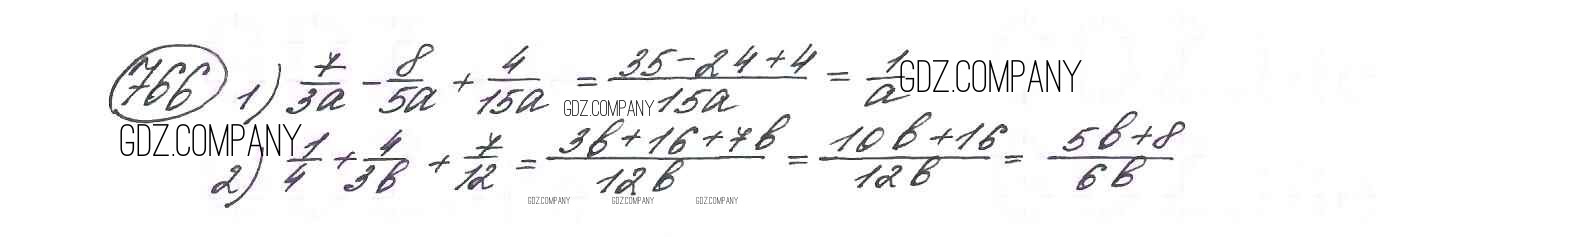 766 1) 7/3a - 8/5a + 4/15a = 35-24+4/15a = 1/a GDZ.COMPANY
GDZ.COMPANY
GDZ.COMPANY 2) 1/4 + 4/3b + 7/12 = 3b+16+7b/12b = 10b+16/12b = 5b+8/6b
GDZ.COMPANY GDZ.COMPANY GDZ.COMPANY